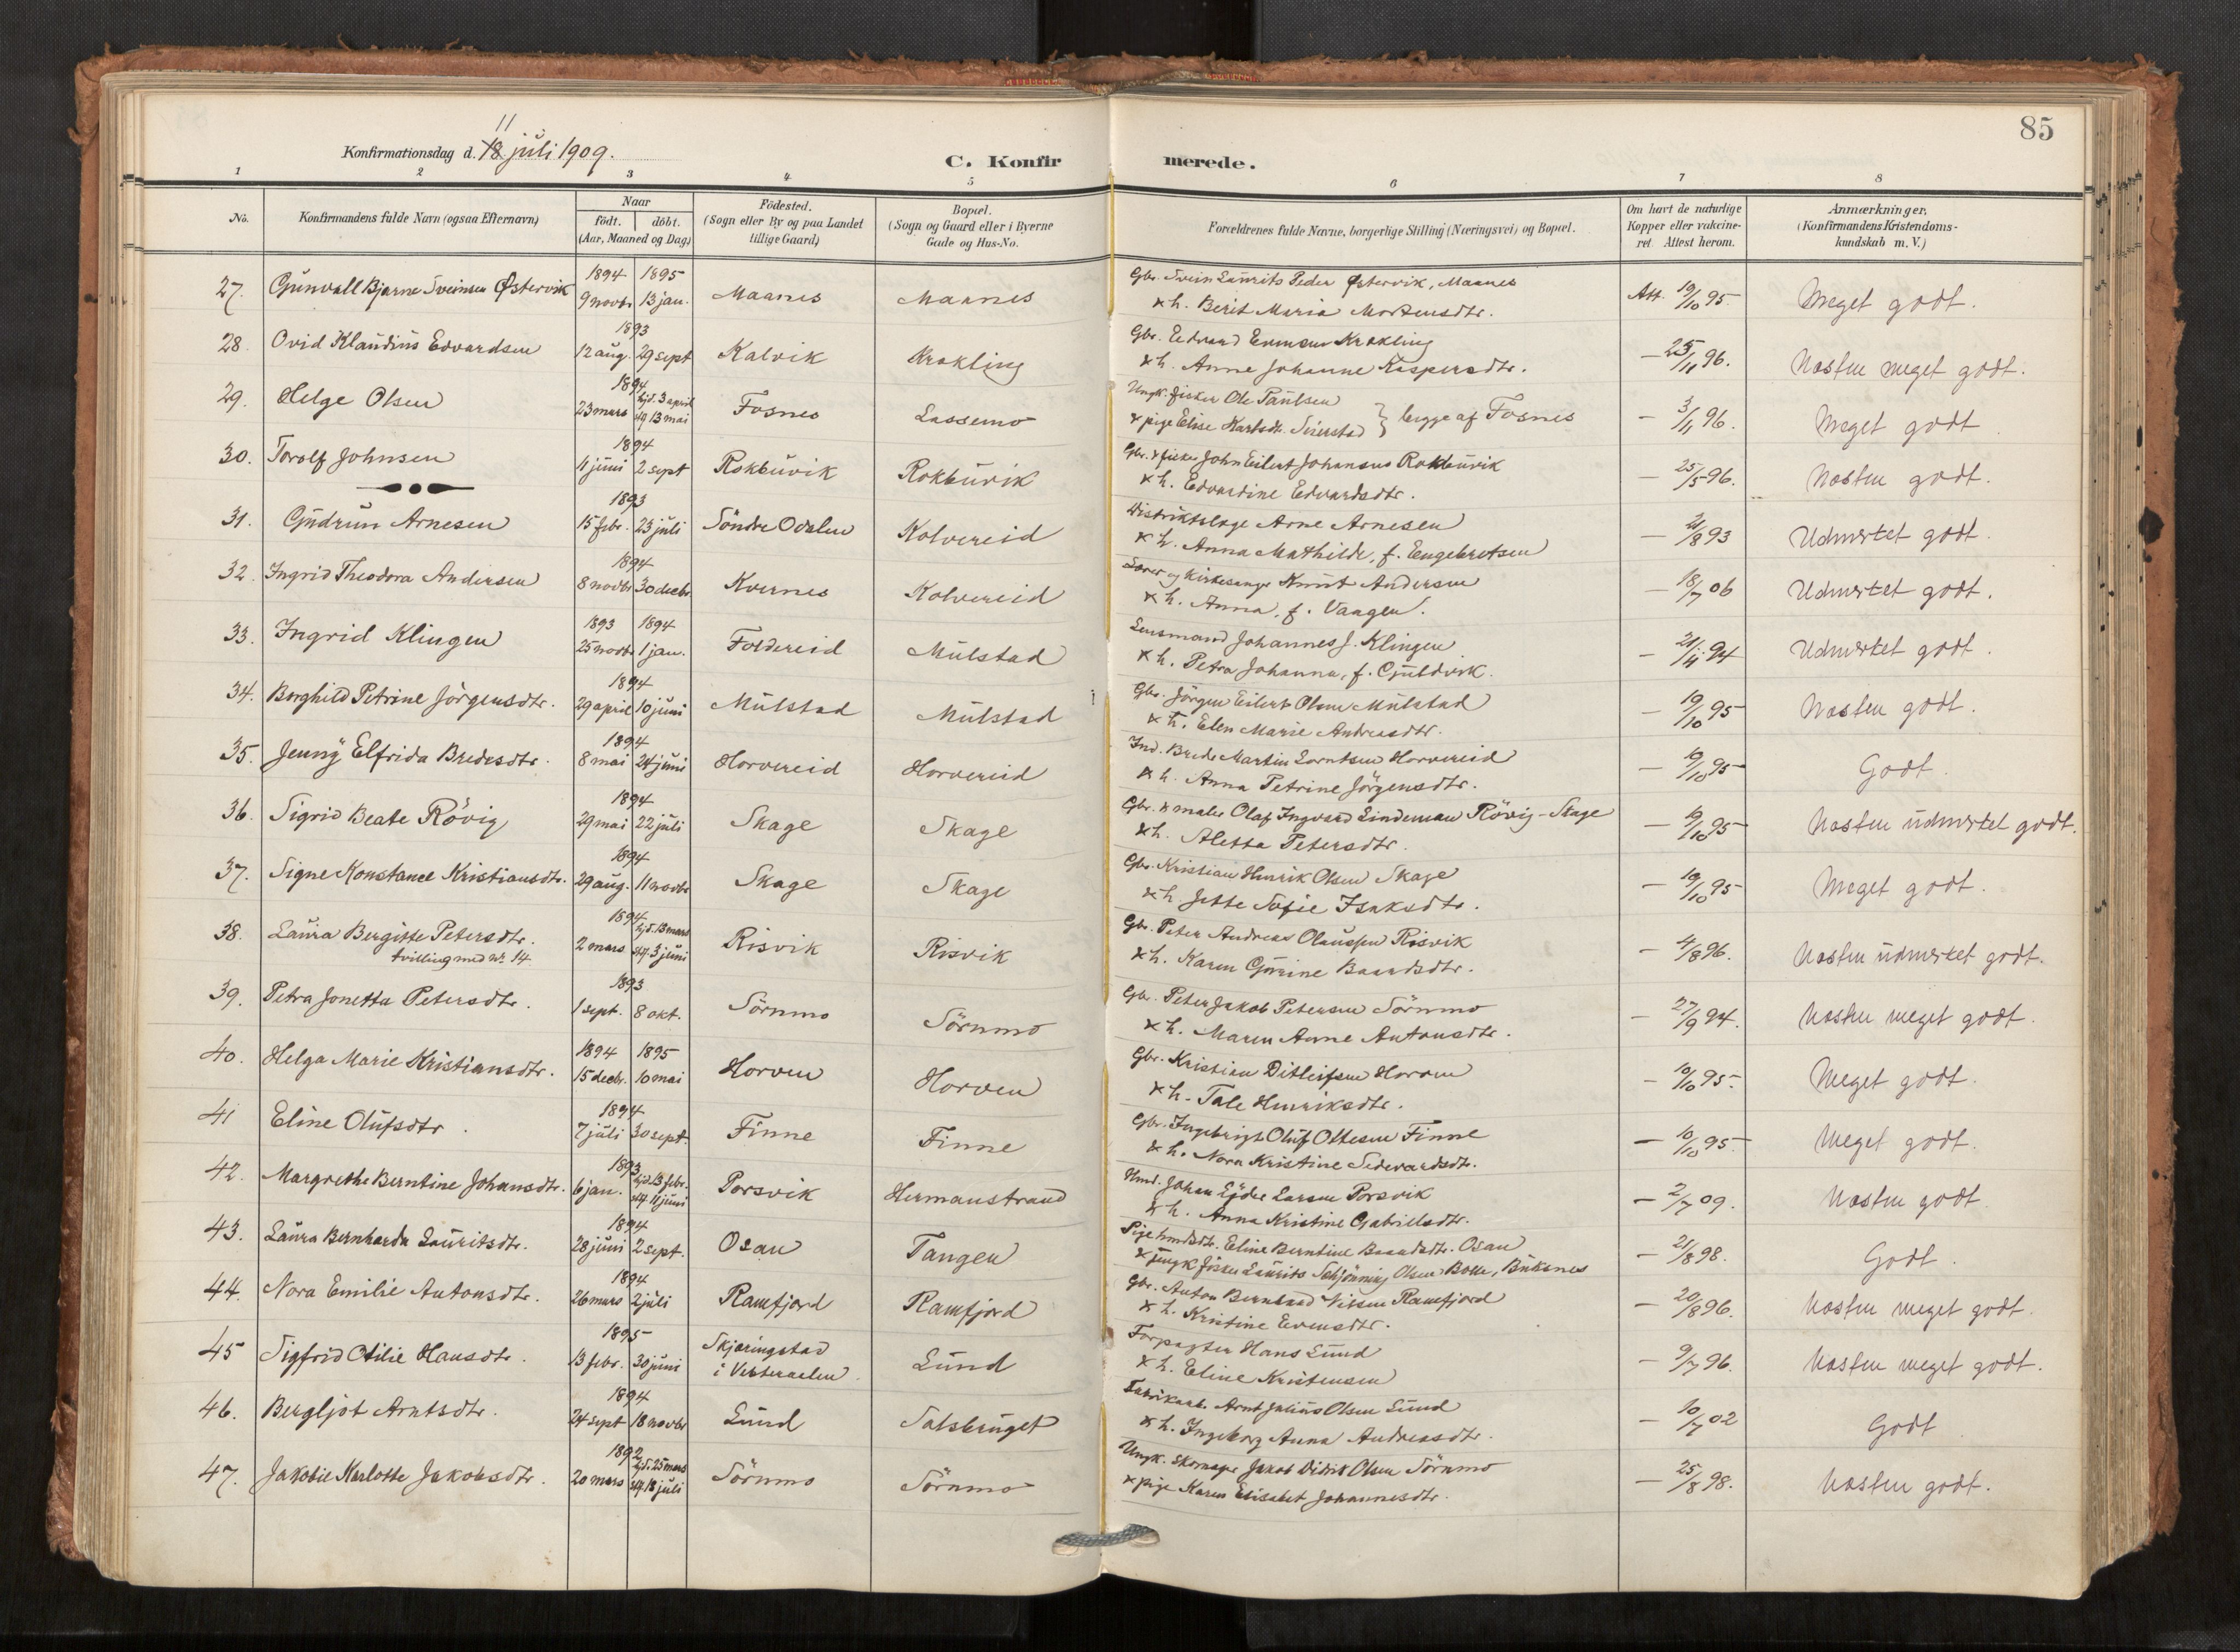 85
11
Konfirmationsdag d. 18 juli 1909.
C. Konfir merede.
1 2 3 4 5 6 7 8
No. Konfirmandens fulde Navn (ogsaa Efternavn) Naar födt. döbt. (Aar, Maaned og Dag) Födested. (Sogn eller By og paa Landet tillige Gaard) Bopæl. (Sogn og Gaard eller i Byerne Gade og Hus-No. Forældrenes fulde Navne, borgerlige Stilling (Næringsvei) og Bopæl. Om havt de naturlige Kopper eller vakcineret. Attest herom. Anmærkninger. (Konfirmandens Kristendomskundskab m. V.)
1894 1895
27. Gunvall Bjarne Sveinsen Østervik 9 novbr 13 jan. Maanes Maanes Gbr. Svein Laurits Peder Østervik, Maanes Att. 19/10 95 Meget godt.
& h. Berit Maria Mortensdtr.
1893
28. Ovid Klaudius Edvardsen 12 aug. 29 sept Kalvik Krakling Gbr. Edvard Krakling — 25/11 96. Næsten meget godt.
& h. Anna Johanne Kaspersdtr.
1894
29. Helge Olsen 23 mars hjd. 3 april stf 13 mai Fosnes Lassemo Ungk. fisker Ole Paulsen — 3/11 96. Meget godt
& pige Elise Karlsdt. } begge af Fosnes
1894
30. Torolf Johnsen 11 juni 2 sept Rokbuvik Rokbuvik Gbr. & fisker John Eilert Johansen Rokbuvik — 25/5 96. Næsten godt.
& h. Edvardine Edvardsdtr.
1893
31. Gudrun Arnesen 15 febr. 23 juli Söndre Odalen Kolvereid Distriktslæge Arne Arnesen — 21/8 93 Udmerket godt.
& h. Anna Mathilde, f. Engebretsen
1894
32. Ingrid Theodora Andersen 8 novbr 30 decbr Kvernes Kolvereid Lærer og kirkesanger Knut Andersen — 18/7 06 Udmerket godt.
& h. Anna, f. Vaagen.
1893 1894
33. Ingrid Klingen 25 novbr 1 jan. Foldereid Mulstad Lensmand Johannes J. Klingen — 21/11 94 Udmerket godt.
& h. Petra Johanna, f. Gjuldvik.
1894
34. Borghild Petrine Jörgensdtr. 29 april 10 juni Mulstad Mulstad Gbr. Jörgen Eilert Olsen Mulstad — 19/10 95 Næsten godt.
& h. Elen Marie Andreasdtr.
1894
35. Jenny Elfrida Bredesdtr. 8 mai 24 juni Horvereid Horvereid Ind. Brede Martin Lorntsen Horvereid — 19/10 95 Godt.
& h. Anna Petrine Jörgensdtr.
1894
36. Sigrid Beate Rövig 29 mai 22 juli Skage Skage Gbr. & maler Olaf Ingvard Lindeman Rövig - Skage — 19/10 95 Næsten udmerket godt.
& h. Aletta Petersdtr.
1894
37. Signe Konstance Kristiansdtr. 29 aug. 11 novbr Skage Skage Gbr. Kristian Henrik Olsen Skage — 19/10 95 Meget godt.
& h. Jette Sofie Isaksdtr.
1894
38. Laura Bergitte Petersdtr. 2 mars hjd. 13 mars stf. 3 juni Risvik Risvik Gbr. Peter Andreas Olaussen Risvik — 4/8 96. Næsten udmerket godt.
tvilling med No. 14
& h. Karen Gurine Baardsdtr.
1893
39. Petra Jonetta Petersdtr. 1 sept. 8 okt. Sörnmo Sörnmo Gbr. Peter Jakob Petersen Sörnmo — 27/9 94. Næsten meget godt.
& h. Maren Anne Antonsdtr.
1894 1895
40. Helga Marie Kristiansdtr. 15 decbr. 10 mai Horven Horven Gbr. Kristian Ditleifsen Horven — 10/10 95. Meget godt.
& h. Tale Henriksdtr.
1894
41 Eline Olufsdtr. 7 juli 30 sept. Finne Finne Gbr. Ingebrigt Oluf Ottesen Finne — 10/10 95 Meget godt.
& h. Nora Kristine Sedevardsdtr.
1893
42. Margrethe Berntine Johansdtr. 6 jan. hjd. 13 febr. stf. 11 juni Porsvik Hermanstrand Hmd. Johan Ejder Larsen Porsvik — 2/7 09. Næsten godt
& h. Anna Kristine Gabrielsdtr.
1894
43. Laura Bernharda Lauritsdtr. 28 juni 2 sept. Osan Tangen Pige hmdsdtr. Eline Berntine Baardsdtr. Osan — 21/8 98. Godt.
& ungk fisker Laurits Schjönning Olsen Bolle, Buksnes
1894
44. Nora Emilie Antonsdtr. 26 mars 2 juli Ramfjord Ramfjord Gbr. Anton Bernhard Nilsen Ramfjord — 20/8 96. Næsten meget godt.
& h. Kristine Evensdtr.
1895
45 Sigfrid Otilie Hansdtr. 13 febr. 30 juni Skjæringstad i Vesteraalen Lund Forpagter Hans Lund — 9/7 96. Næsten meget godt.
& h. Eline Kristensen
1894
46. Bergljot Arntsdtr. 24 sept 18 novbr Lund Salsbruget Fabrikarb. Arnt Julius Olsen Lund — 10/7 02 Godt
& h. Ingeborg Anna Andreasdtr.
1892
47. Jakobie Karlotte Jakobsdtr. 20 mars hjd. 25 mars stf. 18 juli Sörnmo Sörnmo Ungk. Skomager Jakob Didrik Olsen Sörnmo — 25/8 98. Næsten godt.
& pige Karen Elisabet Johannesdtr.